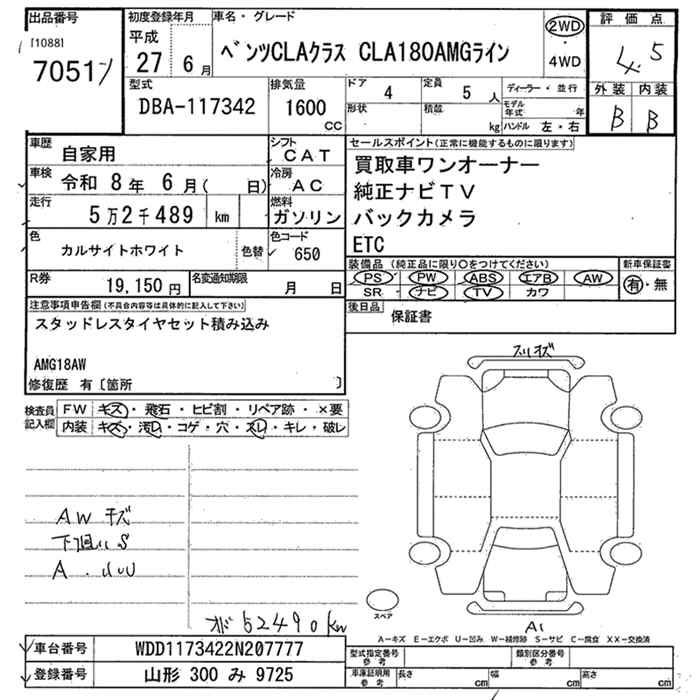 出品番号
[1088]
7051
初度登録年月
平成
27 6月
車名・グレード
ベンツCLAクラス CLA180AMGライン
2WD
・
4WD
評価点
4.5
外装 内装
B B
型式
DBA-117342
排気量
1600
CC
ドア 4
定員 5 人
形状
積載 kg
ディーラー・並行
モデル年式 年
ハンドル 左・右
車歴 自家用
シフト CAT
車検 令和 8年 6月( 日)
冷房 AC
走行 5万2千489 km
燃料 ガソリン
色 カルサイトホワイト
色替
色コード 650
R券 19,150円
名変通知期限 月 日
セールスポイント(正常に機能するものに限ります)
買取車ワンオーナー
純正ナビTV
バックカメラ
ETC
装備品 (純正品に限り○をつけてください)
PS PW ABS エアB AW
SR ナビ TV カワ
新車保証書
有・無
後日品 保証書
注意事項申告欄(不具合内容等は具体的に記入して下さい)
スタッドレスタイヤセット積み込み
AMG18AW
修復歴 有〔箇所 〕
検査員記入欄
FW キズ・飛石・ヒビ割・リペア跡・×要
内装 キズ・汚れ・コゲ・穴・スレ・キレ・破レ
AW キズ
下廻り S
A
52490km
スリキズ
スペア
A1
A−キズ E−エクボ U−凹み W−補修跡 S−サビ C−腐食 XX−交換済
車台番号 WDD1173422N207777
登録番号 山形 300 み 9725
型式指定番号 参考
類別区分番号 参考
車庫証明用 参考
長さ cm
幅 cm
高さ cm